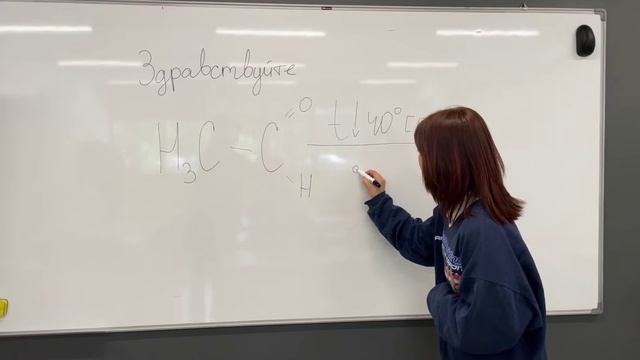 Здравствуйте
H₃C – C
=O
H
t↓ 40°